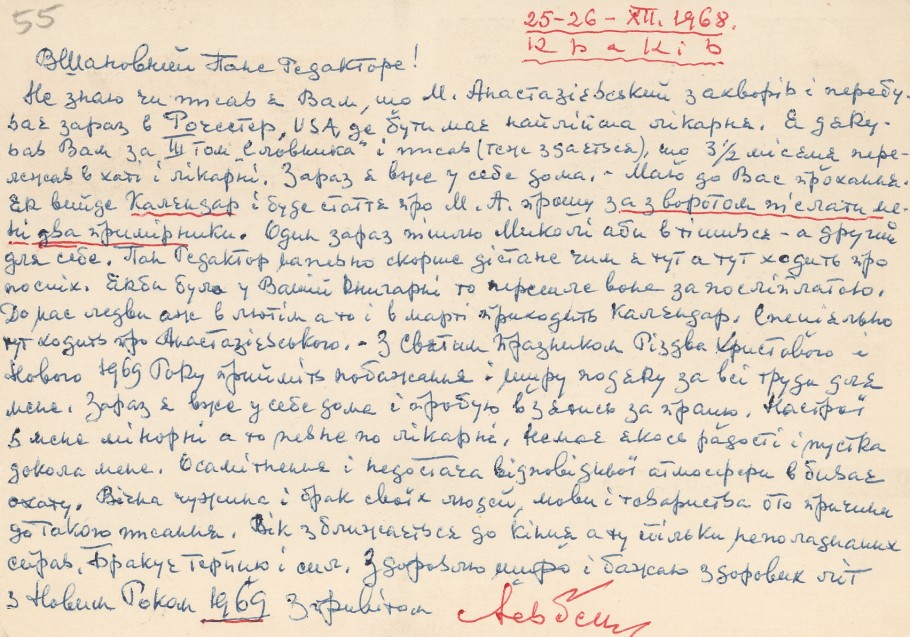 55
25-26-XII. 1968.
Краків
ВШановний Пане Редакторе!
Не знаю чи писав я Вам, що М. Анастазієвський захворів і перебу-
ває зараз в Рочестер, USA, де бути має найліпша лікарня. Я дяку-
вав Вам за III том „Словника" і писав (теж здається), що 3½ місяця пере-
лежав в хаті і лікарні. Зараз я вже у себе дома. - Маю до Вас прохання.
Як вийде Календар і буде стаття про М. А. прошу за зворотом післати ме-
ні два примірники. Один зараз пішлю Миколі аби втішився - а другий
для себе. Пан Редактор напевно скорше дістане чим я тут а тут ходить про
поспіх. Якби було у Вашій книгарні то перешле вона за посліплатою.
До нас ледви аж в лютім а то і в марті приходить Календар. Спеціяльно
тут ходить про Анастазієвського. - З Святим Празником Різдва Христового і
Нового 1969 Року прийміть побажання і щиру подяку за всі труди для
мене. Зараз я вже у себе дома і пробую взятись за працю. Настрої
в мене мінорні а то певне по лікарні. Немає якось радості і пустка
докола мене. Осамітнення і недостача відповідної атмосфери вбиває
охоту. Вічна чужина і брак своїх людей, мови і товариства ото причини
до такого писання. Вік зближається до кінця а ту стільки неполаднаних
справ. Бракує терпцю і сил. Здоровлю щиро і бажаю здорових літ
з Новим Роком 1969 З привітом